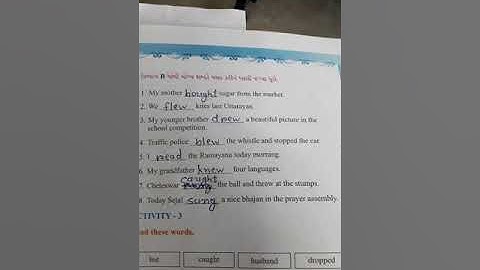 વિભાગ B માંથી યોગ્ય શબ્દને પસંદ કરીને ખાલી જગ્યા પૂરો.
1. My mother bought sugar from the market.
2. We flew kites last Uttarayan.
3. My younger brother drew a beautiful picture in the
school competition.
4. Traffic police blew the whistle and stopped the car.
5. I read the Ramayana today morning.
6. My grandfather knew four languages.
7. Cheleswar caught the ball and throw at the stumps.
8. Today Sejal sang a nice bhajan in the prayer assembly.
CTIVITY - 3
ad these words.
caught husband dropped